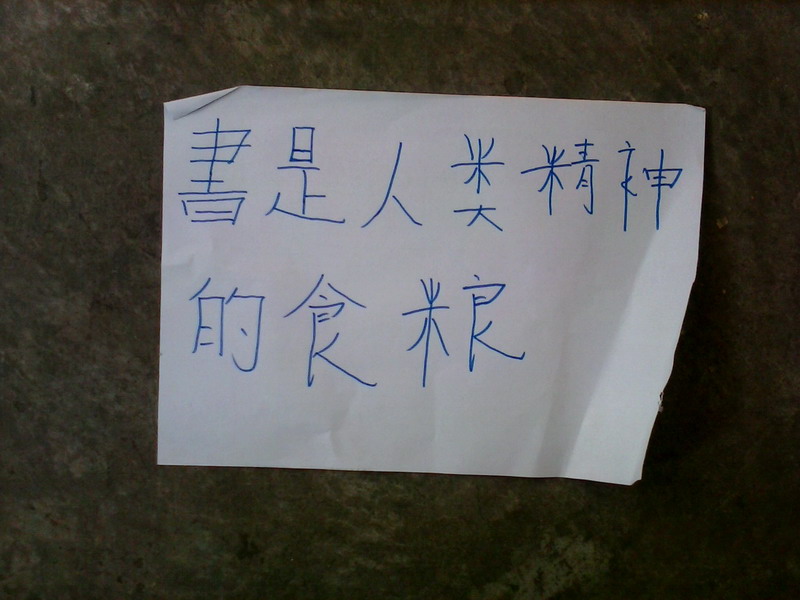 書是人类精神
的食粮